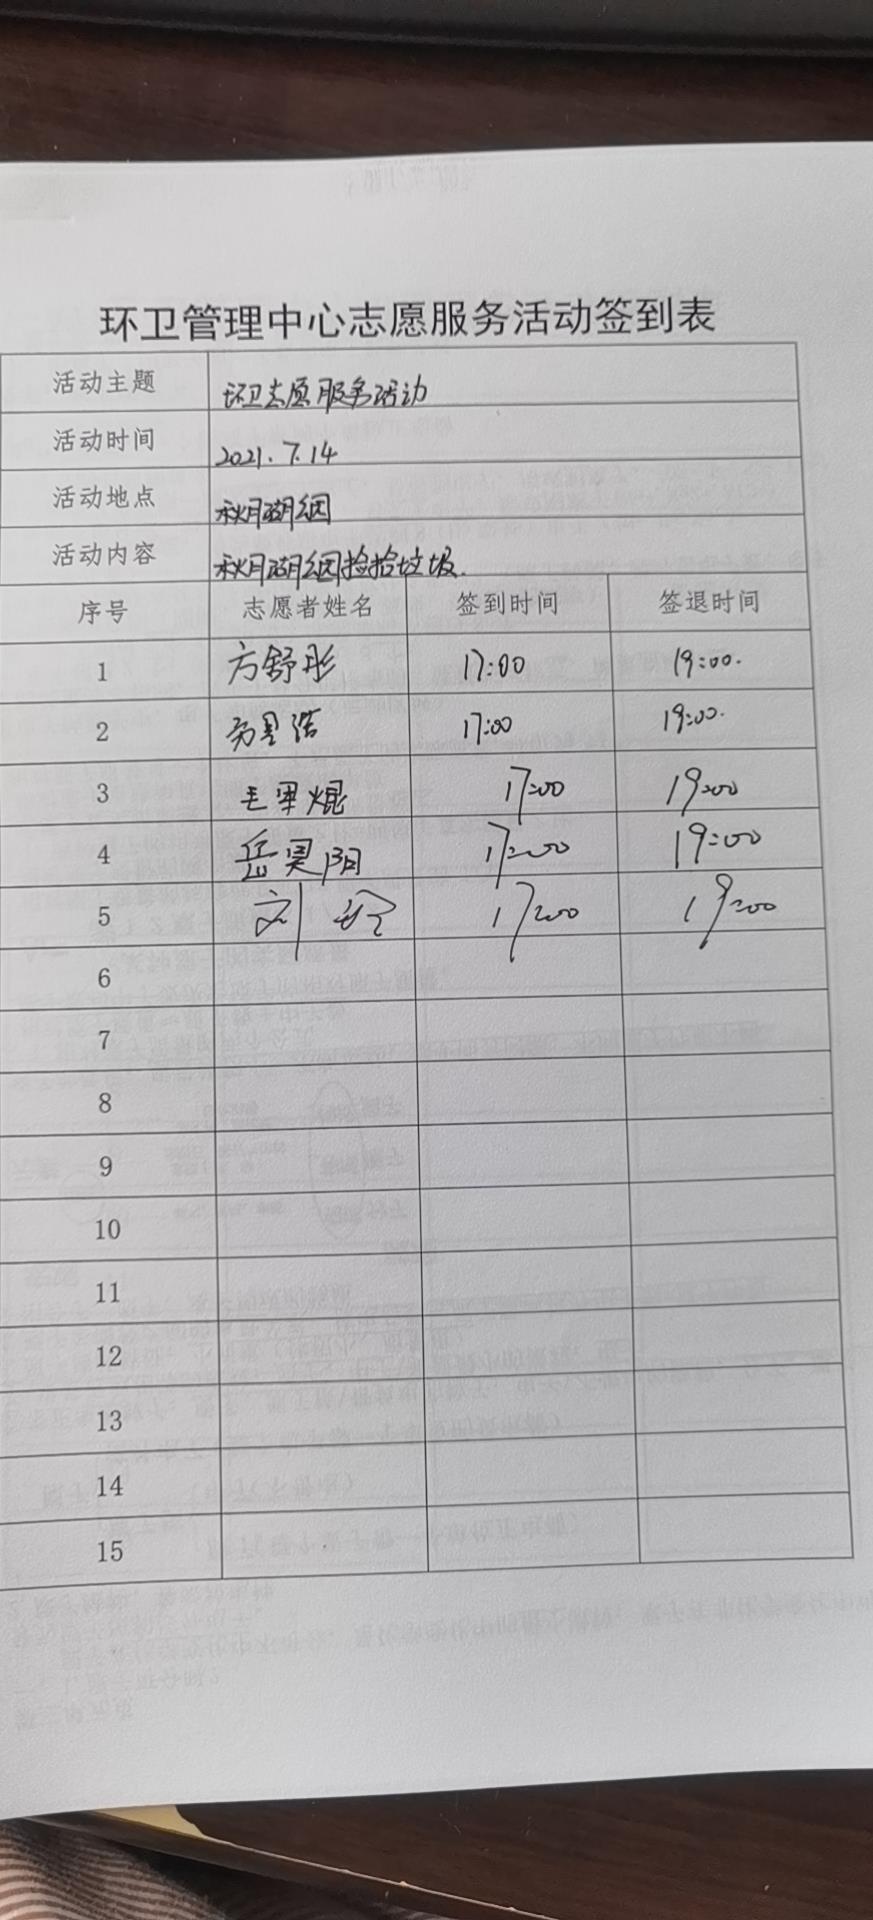 环卫管理中心志愿服务活动签到表
活动主题 环卫志愿服务活动
活动时间 2021.7.14
活动地点 秋月湖
活动内容 秋月湖捡拾垃圾.
序号 志愿者姓名 签到时间 签退时间
1 方舒彤 17:00 19:00.
2 17:00 19:00.
3 毛 焜 17:00 19:00
4 岳昊阳 17:00 19:00
5 刘 17:00 19:00
6
7
8
9
10
11
12
13
14
15